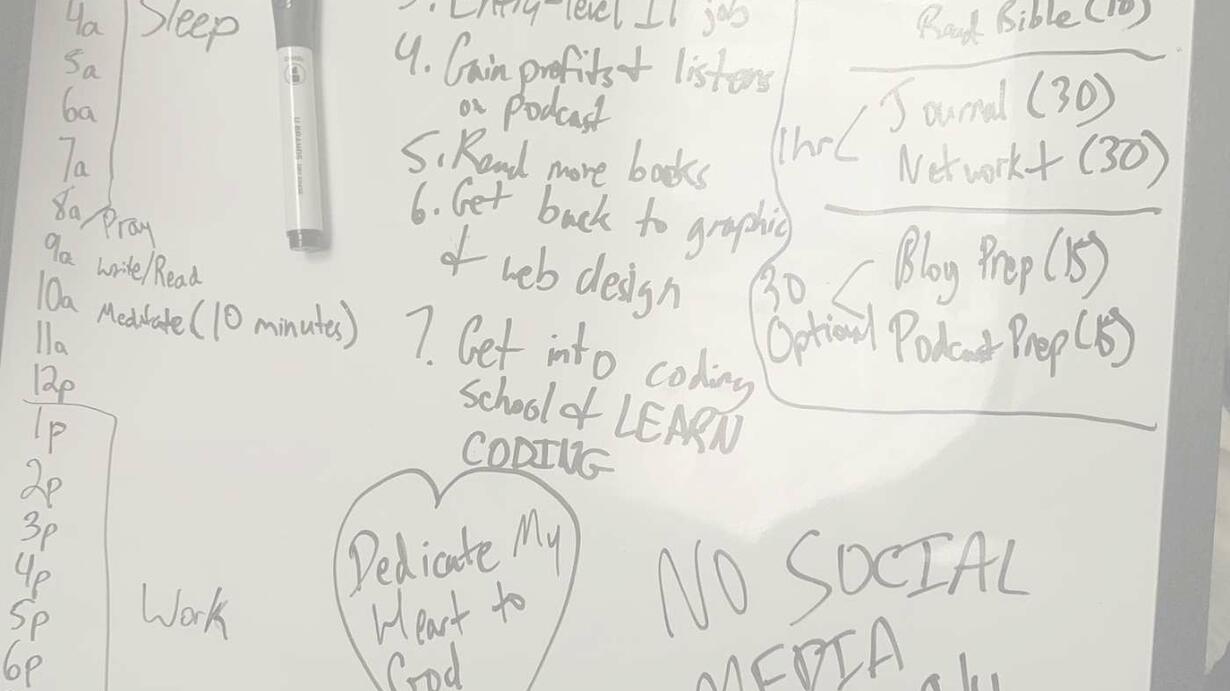 4a Sleep
5a
6a
7a
8a Pray
9a Write/Read
10a Meditate (10 minutes)
11a
12p
1p
2p
3p
4p
5p Work
6p
U BRANDS
3. Entry-level IT job
4. Gain profits & listens
on podcast
5. Read more books
6. Get back to graphic
& web design
7. Get into coding
school & LEARN
CODING
Read Bible (10)
1hr Journal (30)
Network + (30)
30 Blog Prep (15)
Optional Podcast Prep (15)
Dedicate My
Heart to
God
NO SOCIAL
MEDIA